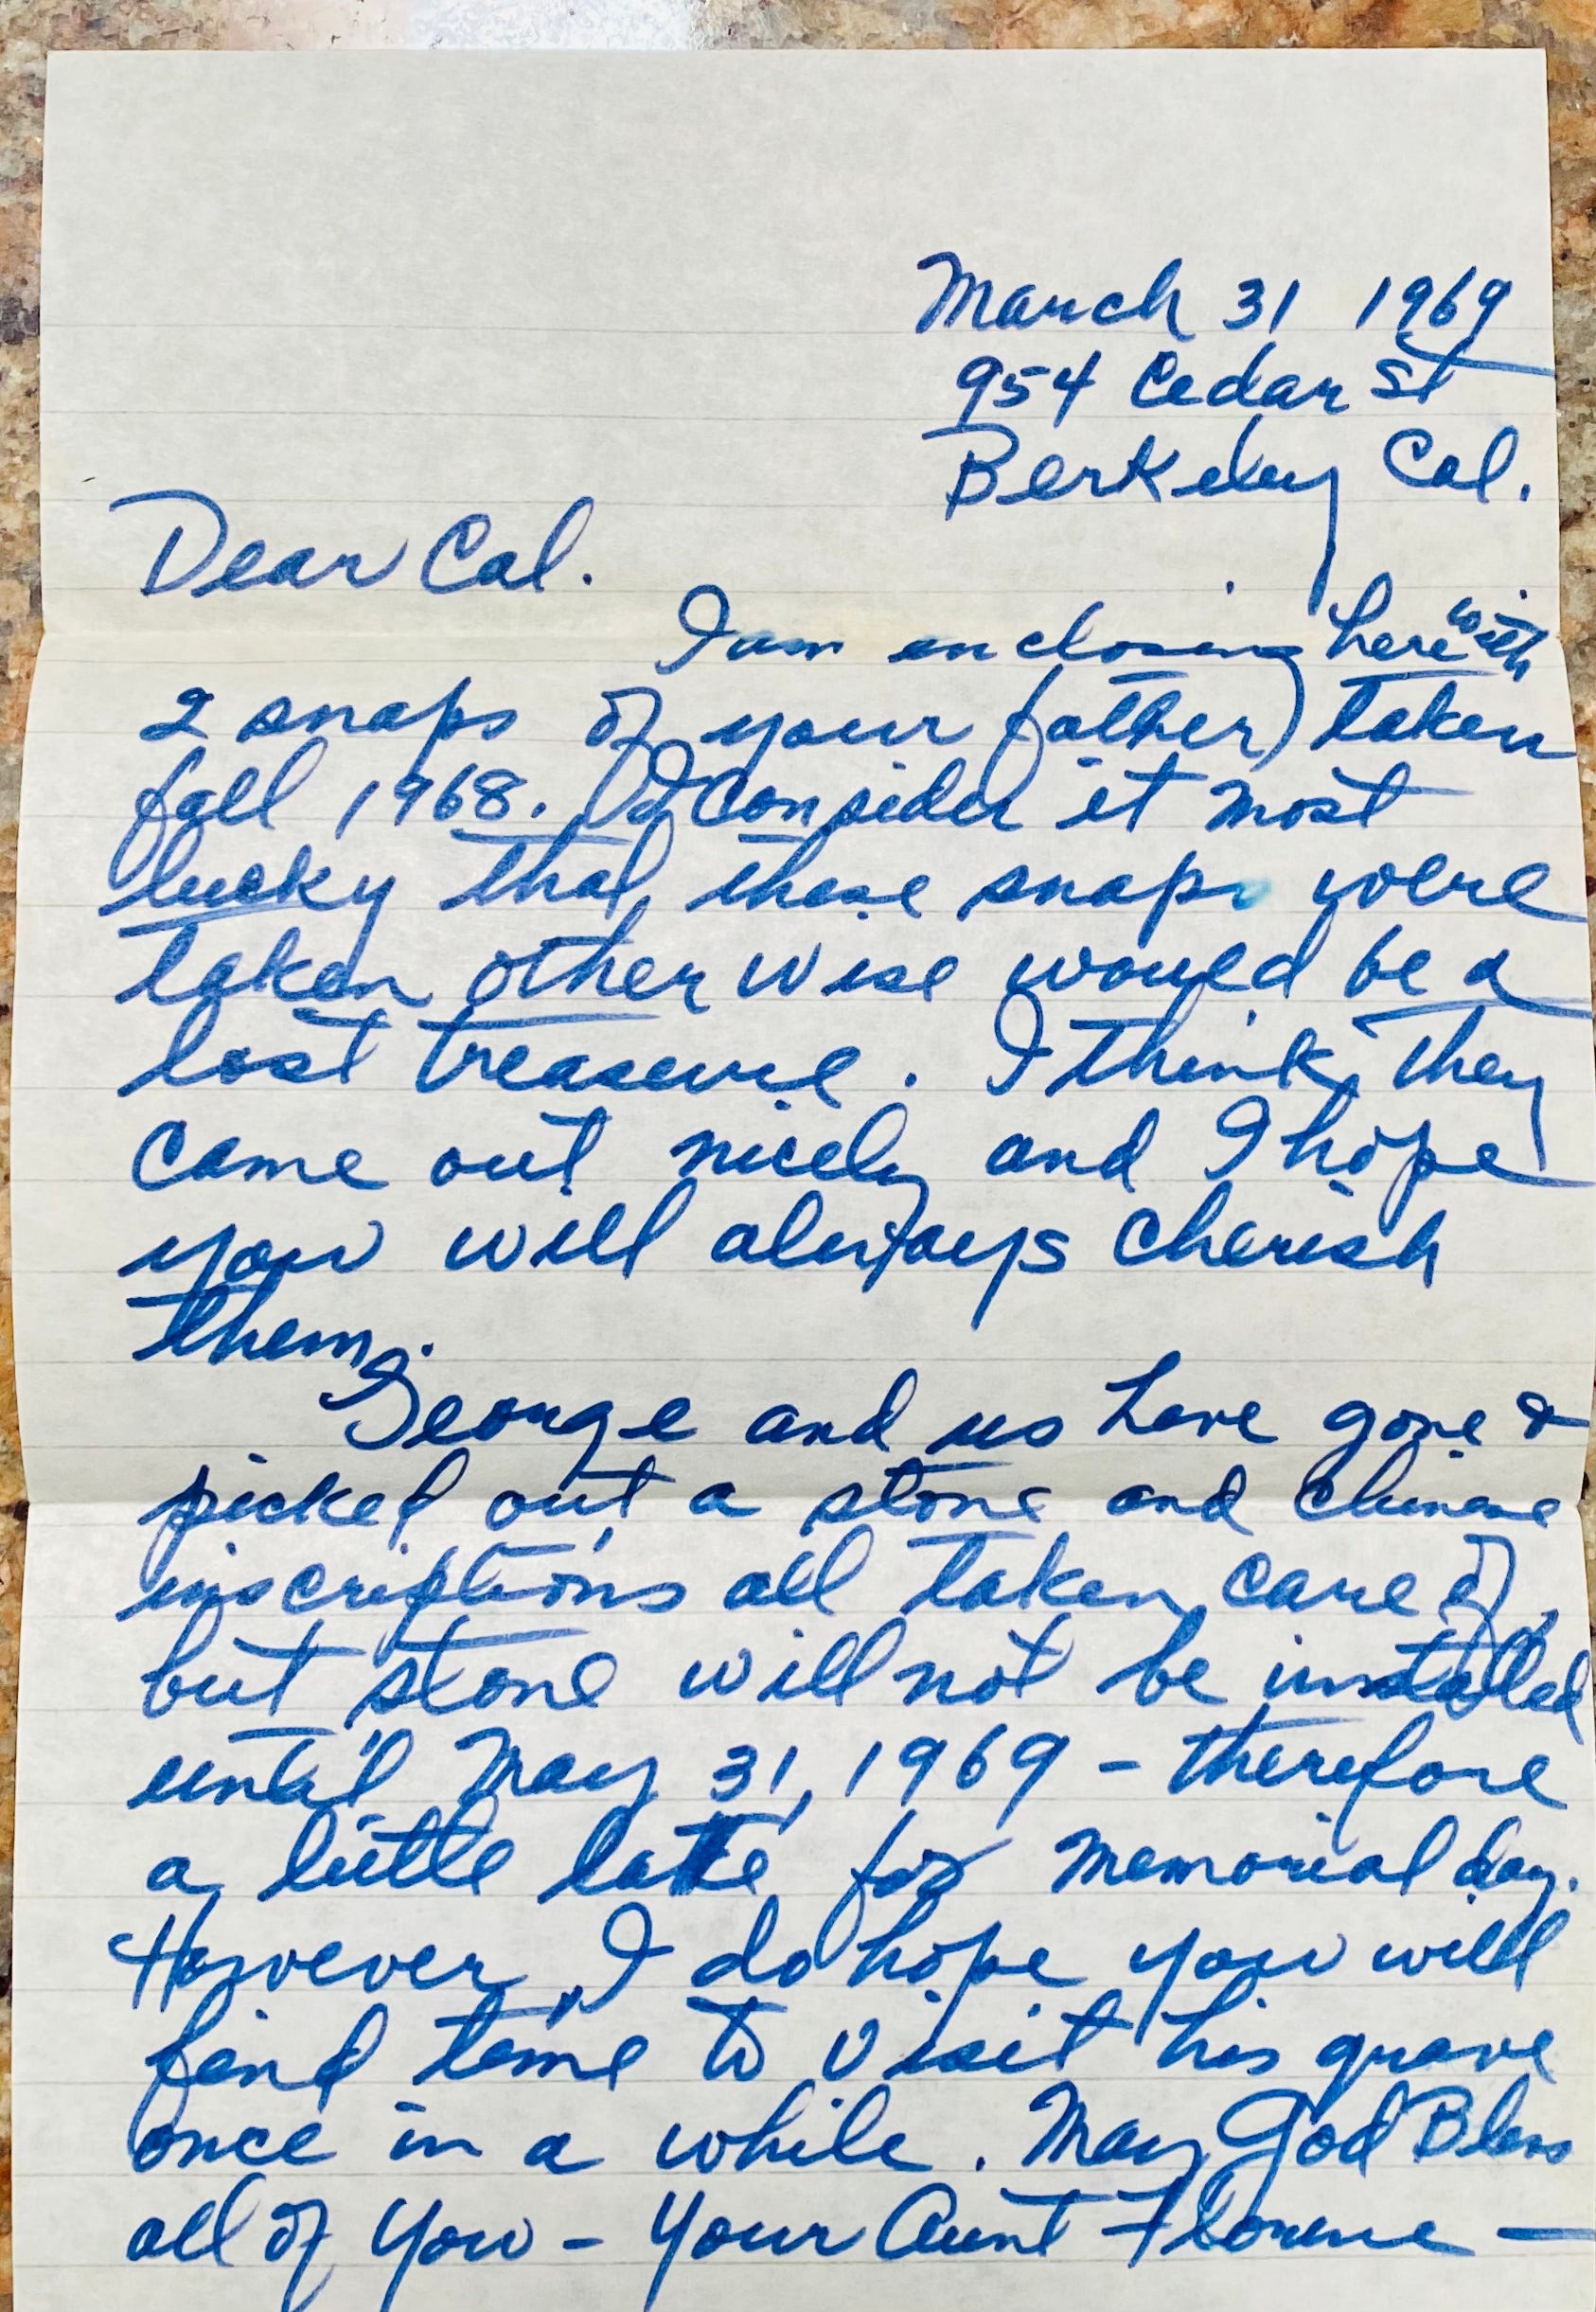 March 31 1969
954 Cedar St
Berkeley Cal.
Dear Cal.
I am enclosing here with
2 snaps of your father) taken
fall 1968. I consider it most
lucky that these snaps were
taken other wise would be a
lost treasure. I think they
came out nicely and I hope
you will always cherish
them.
George and us have gone &
picked out a stone and Chinese
inscriptions all taken care of,
but stone will not be installed
until May 31, 1969 - therefore
a little late for Memorial day.
However, I do hope you will
find time to visit his grave
once in a while. May God Bless
all of you - Your Aunt Florence -